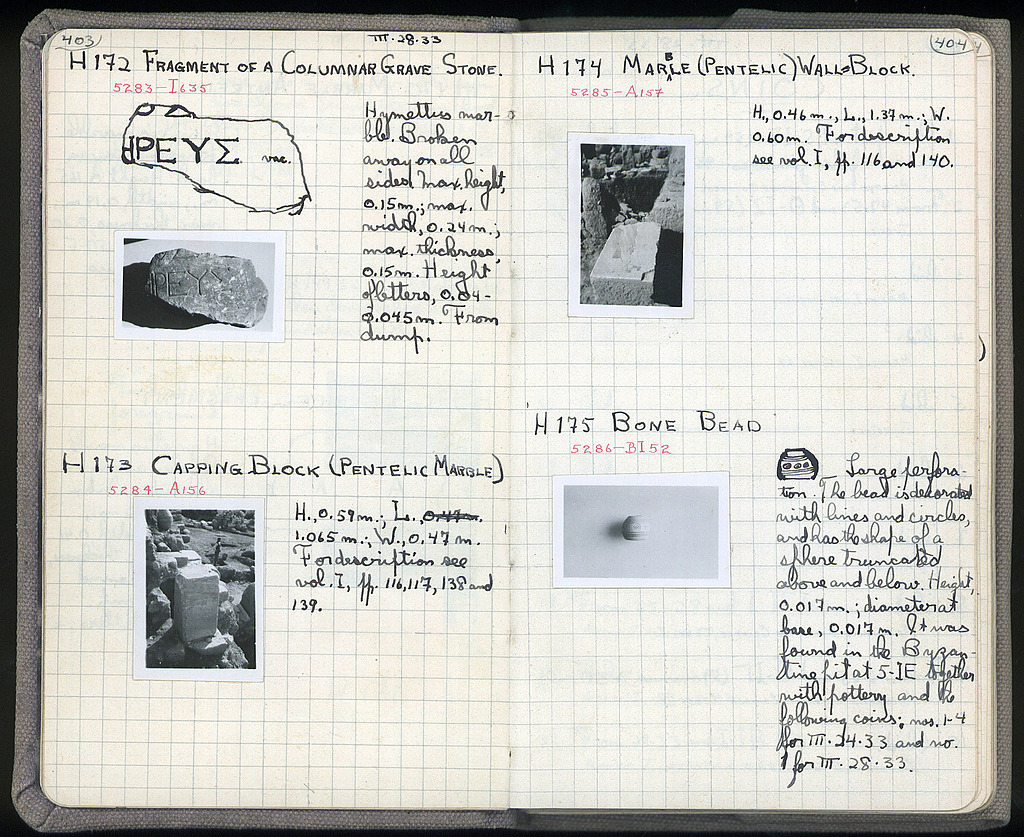 403
III·28·33
H 172 FRAGMENT OF A COLUMNAR GRAVE STONE.
5283-I635
ΡΕΥΣ vac.
Hymettus mar-
ble. Broken
away on all
sides. Max. height,
0.15 m.; max.
width, 0.24 m.;
max. thickness,
0.15 m. Height
of letters, 0.04-
0.045 m. From
dump.
ΡΕΥΣ
H 173 CAPPING BLOCK (PENTELIC MARBLE)
5284-A156
H., 0.59 m.; L., 0.47 m.
1.065 m.; W., 0.47 m.
For description see
vol. I, pp. 116, 117, 138 and
139.
404
H 174 MARBLE (PENTELIC) WALL-BLOCK.
5285-A157
H., 0.46 m., L., 1.37 m.; W.
0.60 m. For description
see vol. I, pp. 116 and 140.
H 175 BONE BEAD
5286-BI52
Large perfora-
tion. The bead is decorated
with lines and circles,
and has the shape of a
sphere truncated
above and below. Height,
0.017 m.; diameter at
base, 0.017 m. It was
found in the Byzan-
tine pit at 5-IE together
with pottery and the
following coins: nos. 1-4
for III·24·33 and no.
1 for III·28·33.